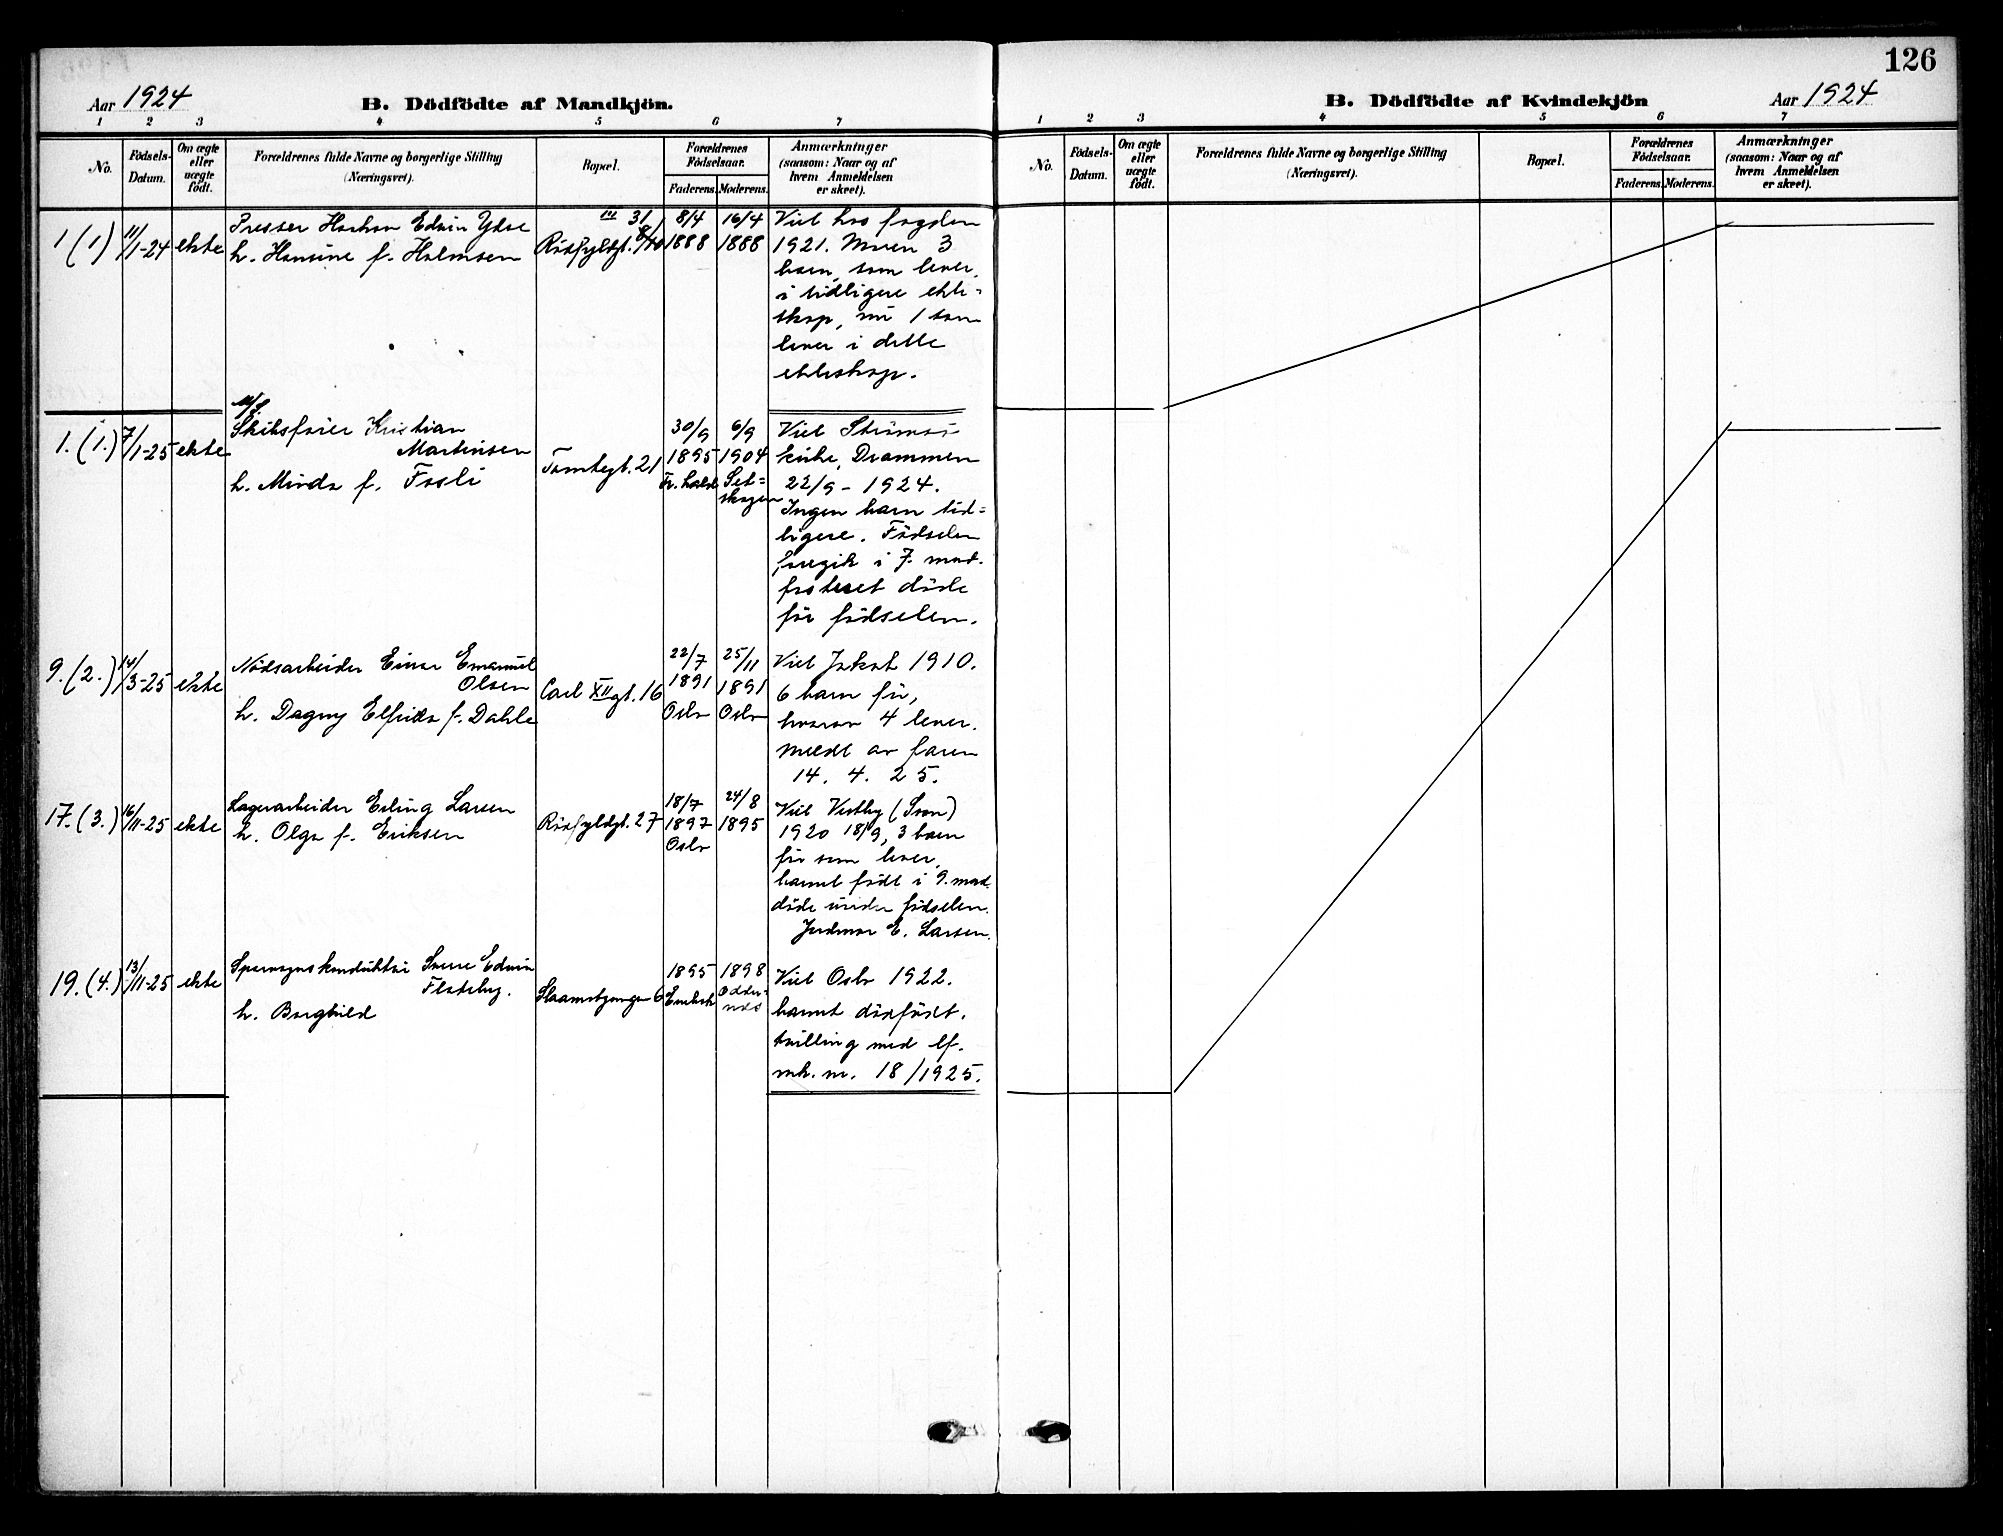 126
Aar 1924
B. Dödfödte af Mandkjön.
1 2 3 4 5 6 7
No.
Födsels-
Datum.
Om ægte
eller
uægte
født.
Forældrenes fulde Navne og borgerlige Stilling
(Næringsvei).
Bopæl.
Forældrenes
Födselsaar.
Faderens. Moderens.
Anmærkninger
(saasom: Naar og af
hvem Anmeldelsen
er skeet).
1 (1) 11/1-24 ekte
Presser Haakon Edvin
h. Hansine f. Halmsen
31
Rosfyldgt.
8/4 1888
16/4 1888
Viet hos fogden
1921. Moren 3
barn, som lever,
i tidligere ekte-
skap, nu 1 som
lever i dette
ekteskap.
1. (1.) 7/1-25 ekte
Skibsfører Kristian
Martinsen
h. Minda f. Fosli
Tomtegt. 21
30/9 1895 Fr. hald
6/9 1904 Set-
skogen
Viet Strømsø
kirke, Drammen
22/9 - 1924.
Ingen barn tid-
ligere. Fødselen
foregik i 7. mnd.
fosteret døde
før fødselen.
9. (2.) 14/3-25 ekte
Nødsarbeider Einar Emanuel
Olsen
h. Dagny Elfrida f. Dahle
Carl XII gt. 16
22/7 1891 Oslo
25/11 1891 Oslo
Viet Jakob 1910.
6 barn før,
hvorav 4 lever.
Meldt av faren
14. 4. 25.
17. (3.) 16/11-25 ekte
Lagerarbeider Erling Larsen
h. Olga f. Eriksen
Rosfyldgt. 27
18/7 1897 Oslo
24/8 1895
Viet Vestby (Son)
1920 18/9, 3 barn
før som lever,
barnet født i 9. mnd.
døde under fødselen.
Jordmor E. Larsen.
19. (4.) 13/11-25 ekte
Sporvognskonduktør Sverre Edvin
Flateby.
h. Borghild
6
1895 Enebak
1898 Odder-
nes
Viet Oslo 1922.
barnet dødfødt.
tvilling med lf.
mk. nr. 18/1925.
B. Dödfödte af Kvindekjön
Aar 1924
1 2 3 4 5 6 7
No.
Födsels-
Datum.
Om ægte
eller
uægte
født.
Forældrenes fulde Navne og borgerlige Stilling
(Næringsvei).
Bopæl.
Forældrenes
Födselsaar.
Faderens. Moderens.
Anmærkninger
(saasom: Naar og af
hvem Anmeldelsen
er skeet).